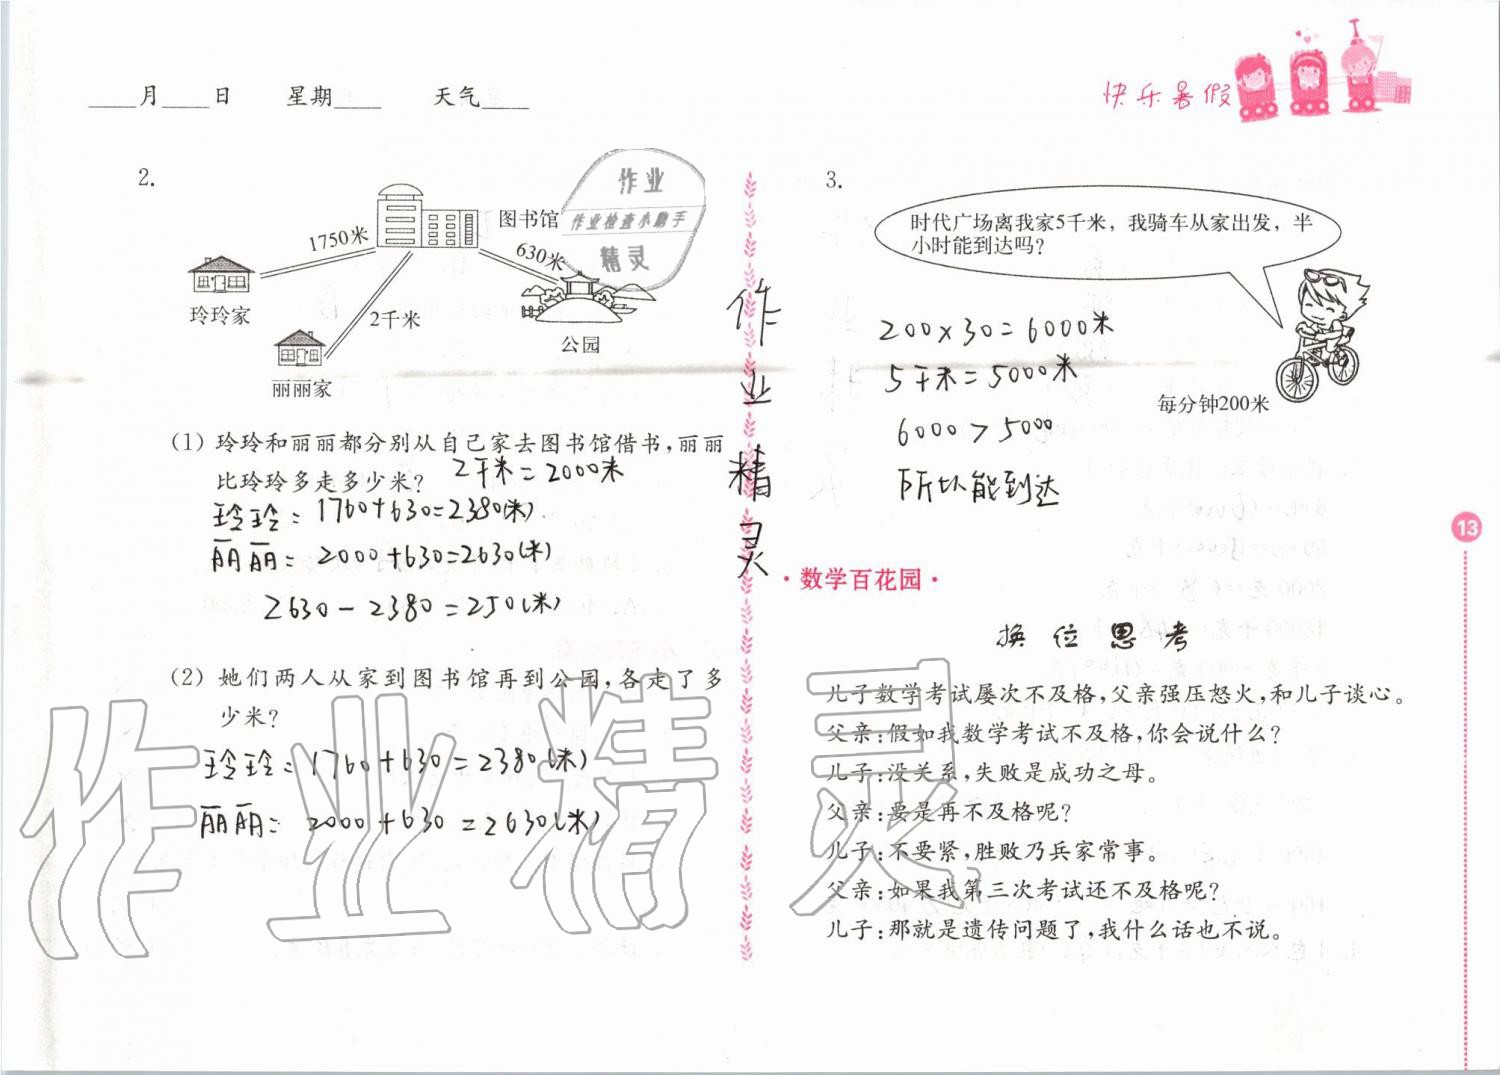 ____月____日 星期____ 天气____
快乐暑假
2.
图书馆
1750米
630米
2千米
玲玲家
丽丽家
公园
作业
作业检查小助手
精灵
(1) 玲玲和丽丽都分别从自己家去图书馆借书,丽丽
比玲玲多走多少米?
2千米=2000米
玲玲:1760+630=2380(米)
丽丽:2000+630=2630(米)
2630-2380=250(米)
(2) 她们两人从家到图书馆再到公园,各走了多
少米?
玲玲:1760+630=2380(米)
丽丽:2000+630=2630(米)
作业精灵
3.
时代广场离我家5千米,我骑车从家出发,半
小时能到达吗?
每分钟200米
200×30=6000米
5千米=5000米
6000>5000
所以能到达
·数学百花园·
换位思考
儿子数学考试屡次不及格,父亲强压怒火,和儿子谈心。
父亲:假如我数学考试不及格,你会说什么?
儿子:没关系,失败是成功之母。
父亲:要是再不及格呢?
儿子:不要紧,胜败乃兵家常事。
父亲:如果我第三次考试还不及格呢?
儿子:那就是遗传问题了,我什么话也不说。
13
作业精灵